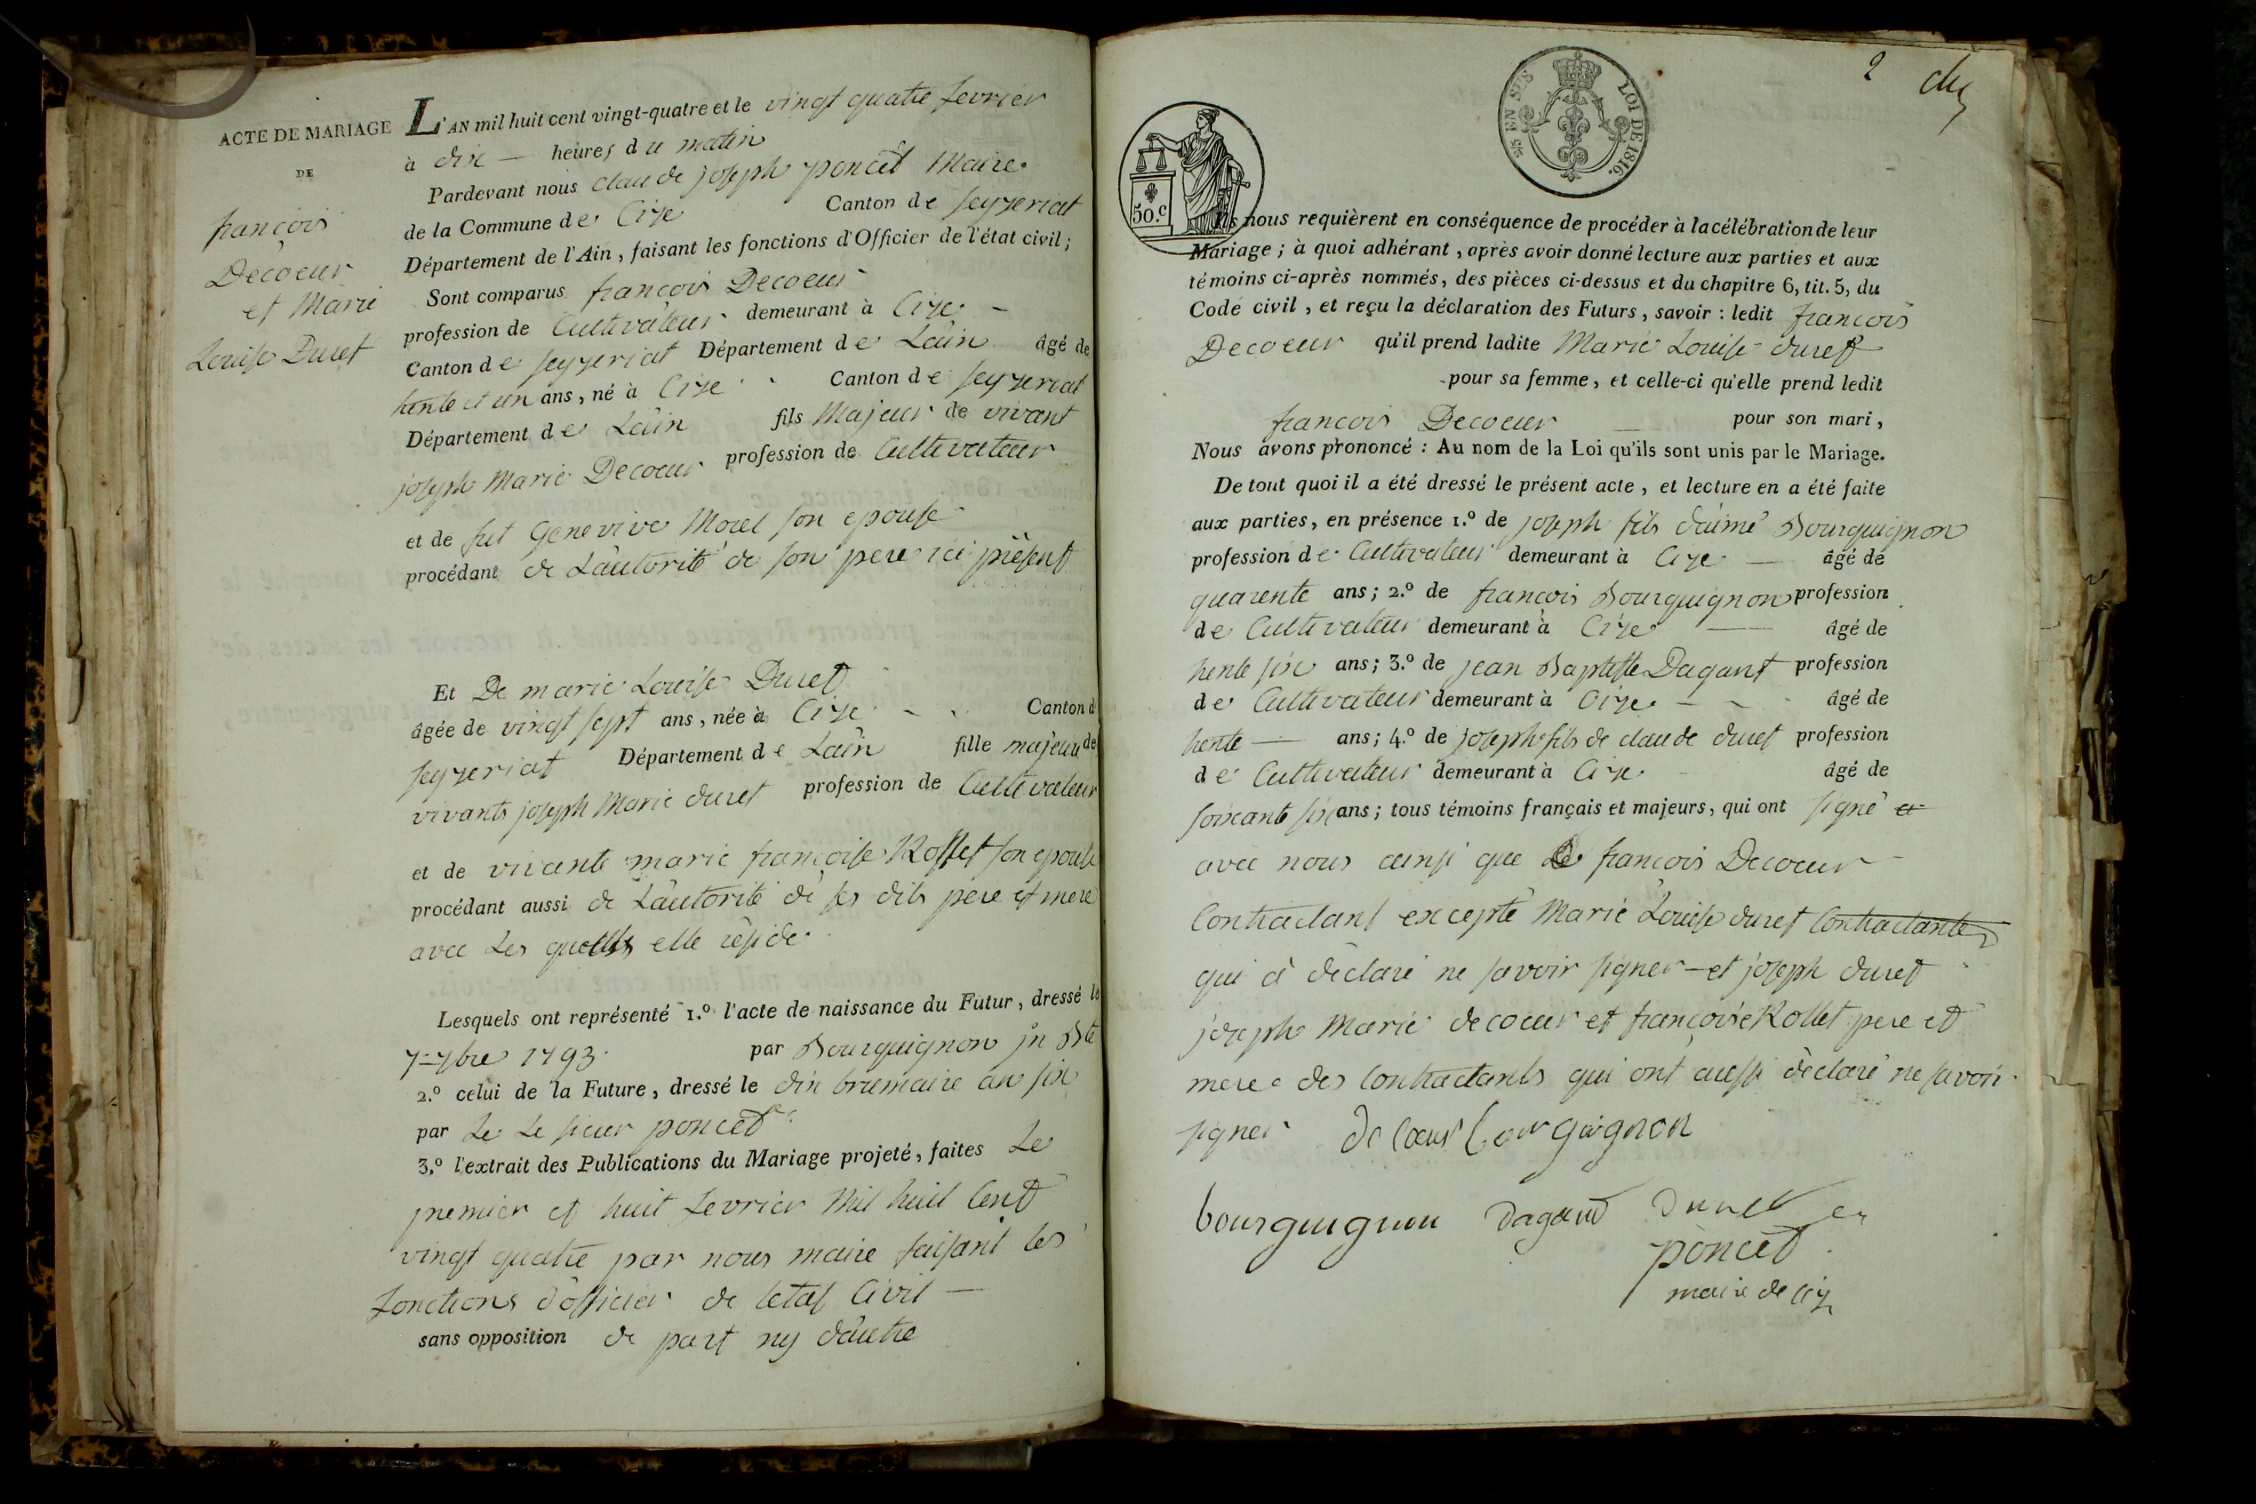 ACTE DE MARIAGE
DE
françois
Decoeur
et Marie
Louise Duret
L'AN mil huit cent vingt-quatre et le vingt quatre fevrier
à dix — heures du matin
Pardevant nous claude joseph poncet Maire
de la Commune de Cize Canton de seyzeriat
Département de l'Ain, faisant les fonctions d'Officier de l'état civil;
Sont comparus françois Decoeur
profession de Cultivateur demeurant à Cize —
Canton de seyzeriat Département de Lain âgé de
trente et un ans, né à Cize Canton de seyzeriat
Département de Lain fils Majeur de vivant
joseph Marie Decoeur profession de Cultivateur
et de fut Genevive Morel son epouse
procédant de Lautorité de son pere ici présent
Et De marie Louise Duret
âgée de vingt sept ans, née à Cize Canton d
seyzeriat Département de Lain fille majeur de
vivants joseph Marie duret profession de Cultivateur
et de vivante marie françoise Rosset son epouse
procédant aussi de Lautorité de ses dits pere et mere
avec Les quells elle réside
Lesquels ont représenté 1.º l'acte de naissance du Futur, dressé le
7 = 7bre 1793. par Bourguignon jn Bte
2.º celui de la Future, dressé le dix brumaire an six
par Le Le sieur poncet
3.º l'extrait des Publications du Mariage projeté, faites Le
premier et huit fevrier Mil huit Cent
vingt quatre par nous maire faisant les
fonctions d'officier de letat Civil —
sans opposition de part ny dautre
2
50.c
EN SUS
LOI DE 1816.
Ils nous requièrent en conséquence de procéder à la célébration de leur
Mariage; à quoi adhérant, après avoir donné lecture aux parties et aux
témoins ci-après nommés, des pièces ci-dessus et du chapitre 6, tit. 5, du
Code civil, et reçu la déclaration des Futurs, savoir: ledit françois
Decoeur qu'il prend ladite Marie Louise duret
pour sa femme, et celle-ci qu'elle prend ledit
françois Decoeur pour son mari,
Nous avons prononcé: Au nom de la Loi qu'ils sont unis par le Mariage.
De tout quoi il a été dressé le présent acte, et lecture en a été faite
aux parties, en présence 1.º de joseph fils daimé Bourguignon
profession de Cultivateur demeurant à Cize — âgé de
quarente ans; 2.º de françois Bourguignon profession
de Cultivateur demeurant à Cize — âgé de
trente six ans; 3.º de jean Baptiste Dagant profession
de Cultivateur demeurant à Cize — âgé de
trente — ans; 4.º de joseph fils de claude duret profession
de Cultivateur demeurant à Cize âgé de
soixante six ans; tous témoins français et majeurs, qui ont signé et
avec nous ainsi que françois Decoeur
Contractant excepté Marie Louise duret Contractante
qui à déclaré ne savoir signer — et joseph duret
joseph Marie decoeur et françoise Rollet pere et
mere des Contractants qui ont aussi déclaré ne savoir
signer de Coeur bourguignon
bourguignon Dagand Duret
poncet
maire de Cize